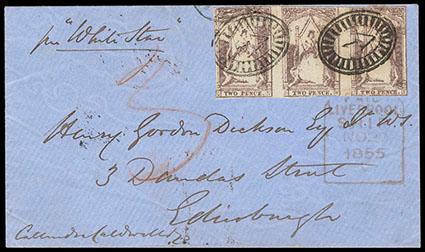 per "White Star"
TWO PENCE. TWO PENCE. TWO PENCE.
3
PAID
LIVERPOOL
SHIP
1855
Henry Gordon Dickson Esq Jr W.S.
3 Dundas Street
Edinburgh